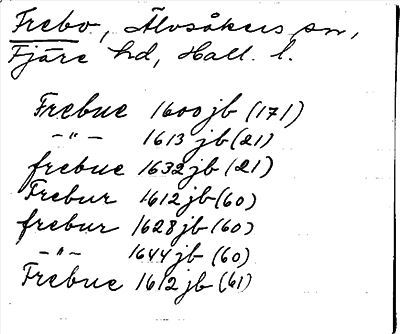 Frebo, Älvsåkers sn,
Fjäre hd, Hall. l.
Frebue 1600 jb (171)
–"– 1613 jb (21)
frebue 1632 jb (21)
Frebur 1612 jb (60)
frebur 1628 jb (60)
–"– 1644 jb (60)
Frebue 1612 jb (61)